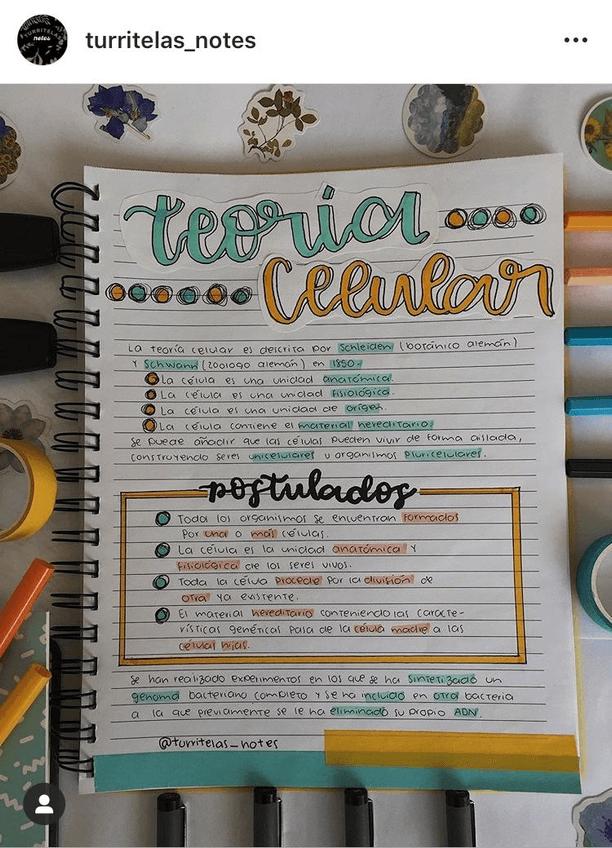 turritelas_notes
TURRITELAS
notes
teoría
Celular
La teoría celular es descrita por Schleiden (botánico alemán)
y Schwann (zoologo alemán) en 1850.
La célula es una unidad anatómica.
La célula es una unidad fisiológica.
La célula es una unidad de origen.
La célula contiene el material hereditario.
Se puede añadir que las células pueden vivir de forma aislada,
construyendo seres unicelulares u organismos pluricelulares.
postulados
Todos los organismos se encuentran formados
por una o más células.
La célula es la unidad anatómica y
fisiológica de los seres vivos.
Toda la célula procede por la división de
otra ya existente.
El material hereditario conteniendo las caracte-
rísticas genéticas pasa de la célula madre a las
células hijas.
Se han realizado experimentos en los que se ha sintetizado un
genoma bacteriano completo y se ha incluido en otra bacteria
a la que previamente se le ha eliminado su propio ADN.
@turritelas_notes